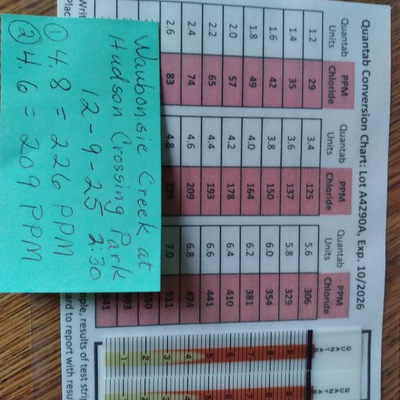 Quantab Conversion Chart: Lot A4290A, Exp. 10/2026
Quantab Units PPM Chloride Quantab Units PPM Chloride Quantab Units PPM Chloride
1.2 29 3.4 125 5.6 306
1.4 35 3.6 137 5.8 329
1.6 42 3.8 150 6.0 354
1.8 49 4.0 164 6.2 381
2.0 57 4.2 178 6.4 410
2.2 65 4.4 193 6.6 441
2.4 74 4.6 209 6.8 474
2.6 83 4.8 226 7.0 511
550
593
641
Waubonsie Creek at
Hudson Crossing Park
2-9-25 2:30
① 4.8 = 226 PPM
② 4.6 = 209 PPM
results of test
to report with